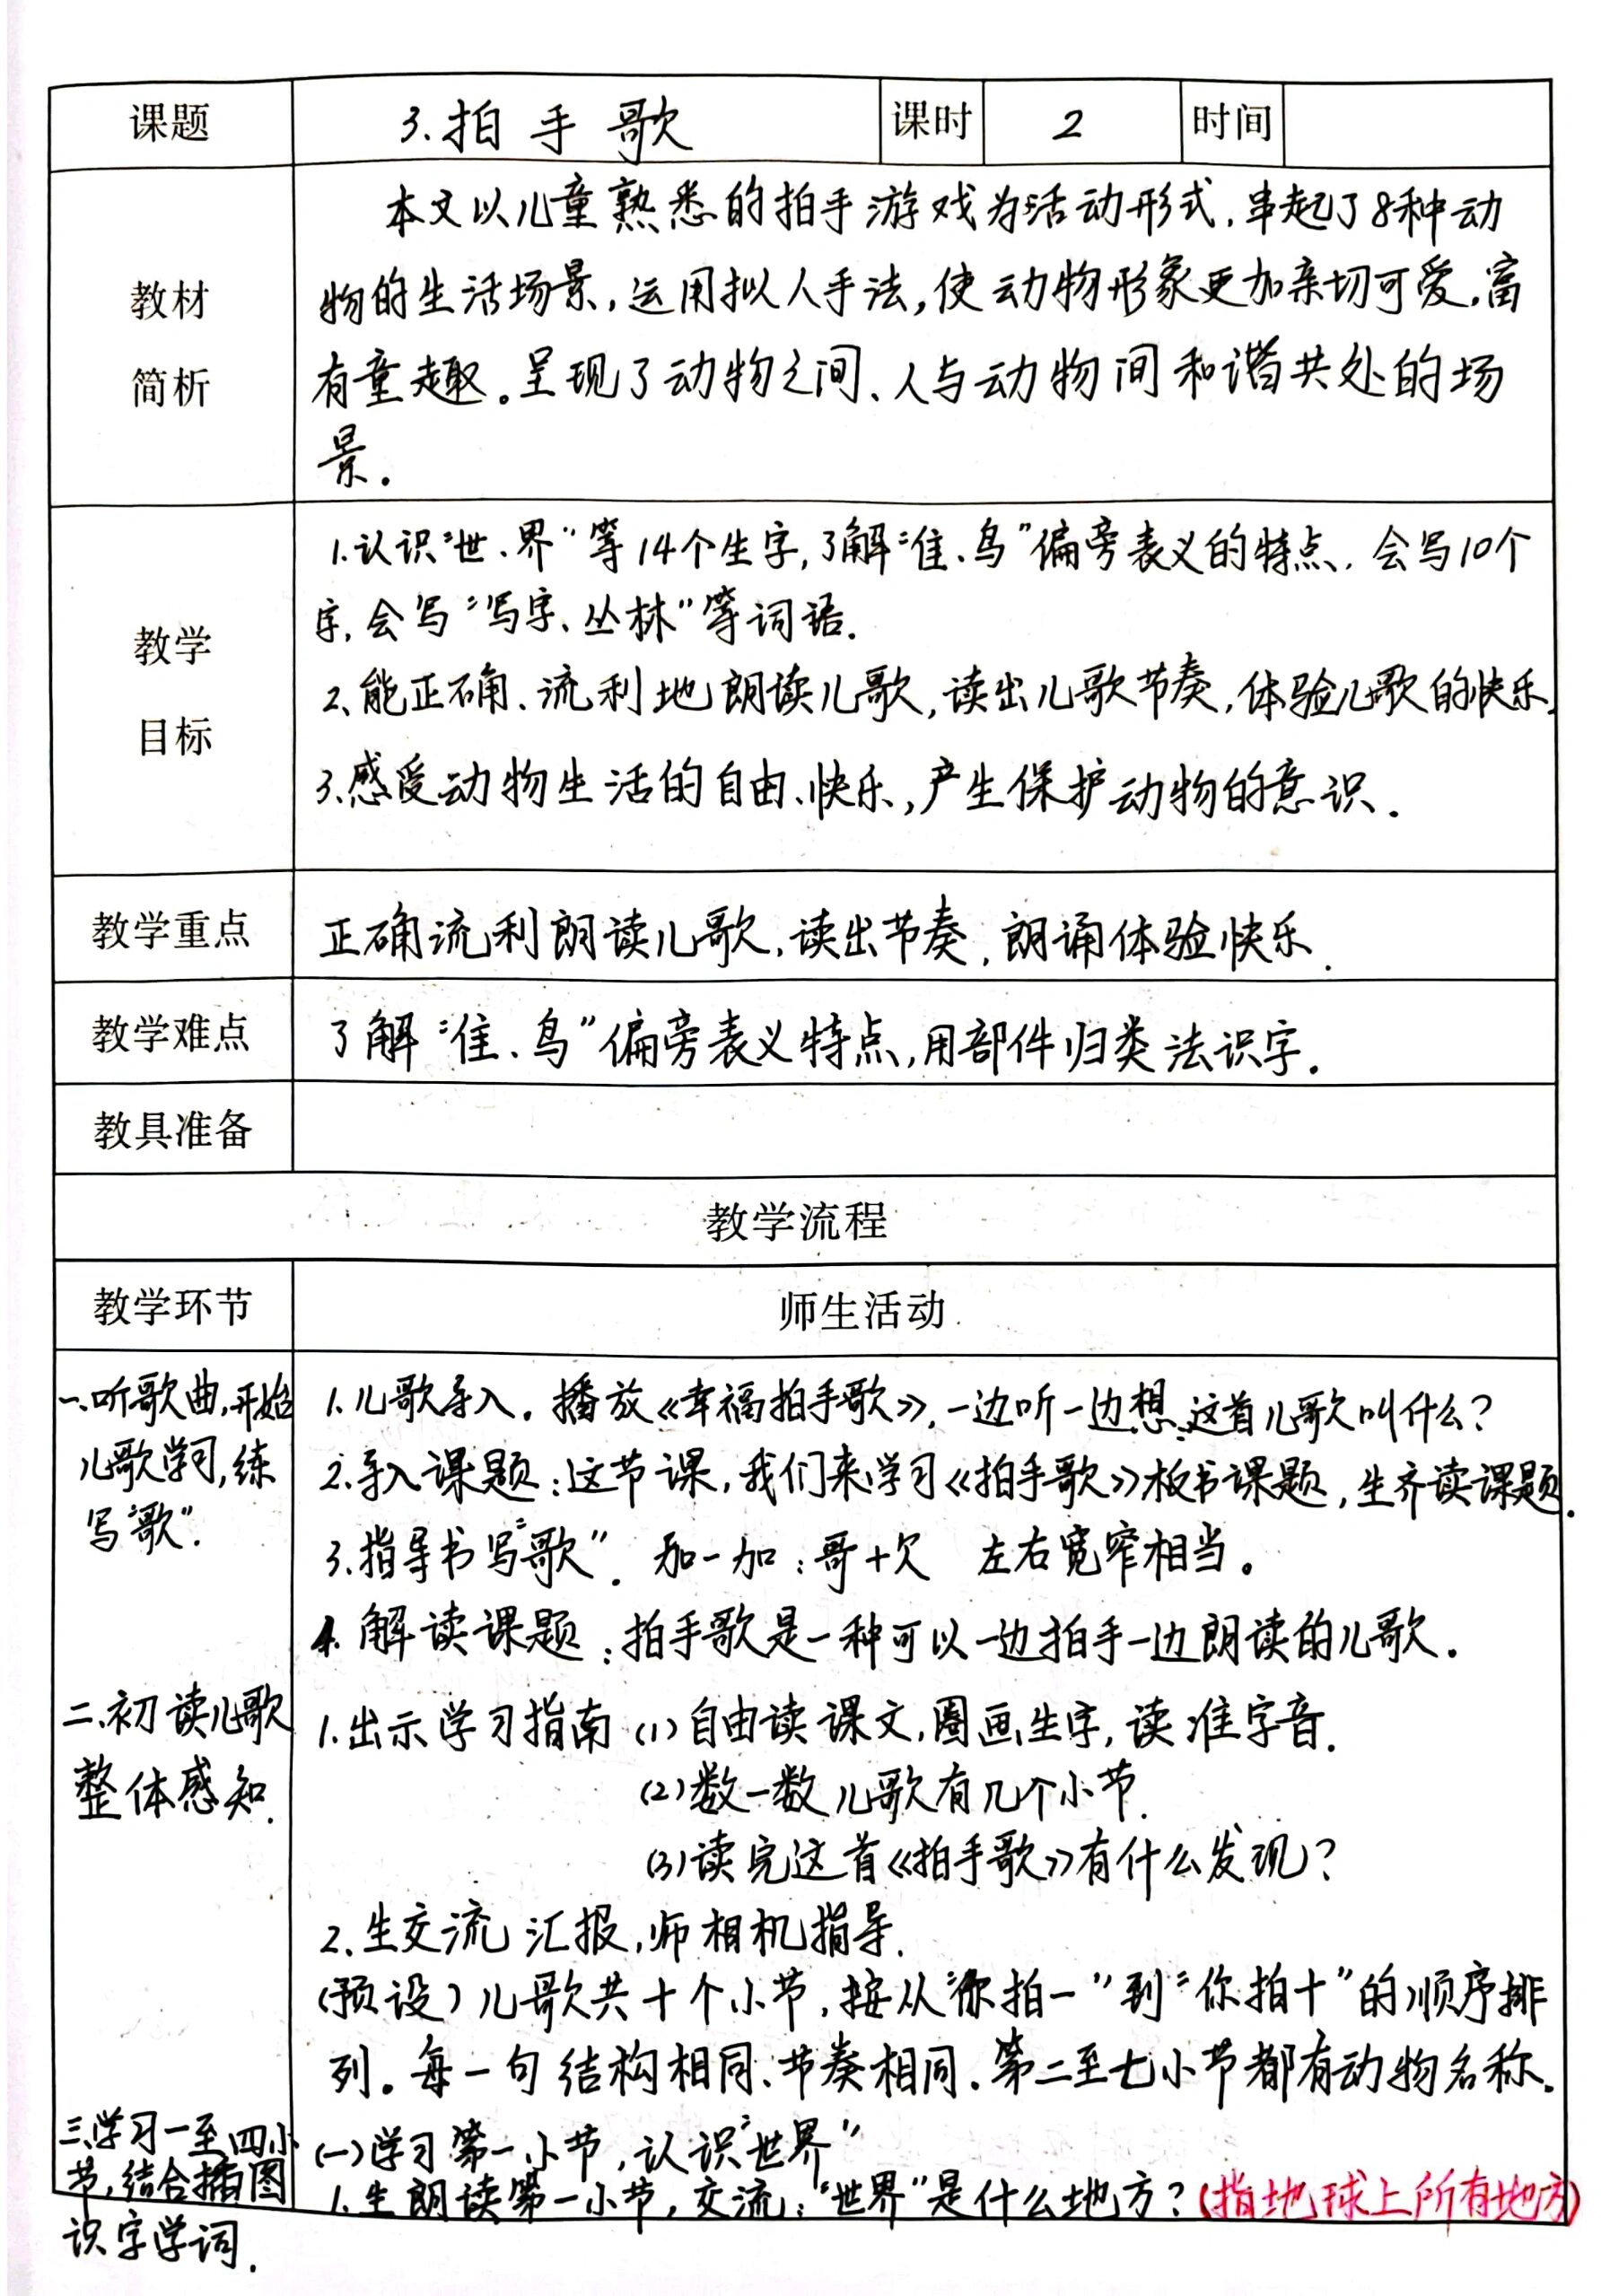 课题 3.拍手歌 课时 2 时间
教材
简析
本文以儿童熟悉的拍手游戏为活动形式,串起了8种动
物的生活场景,运用拟人手法,使动物形象更加亲切可爱,富
有童趣。呈现了动物之间、人与动物间和谐共处的场
景。
教学
目标
1.认识“世、界”等14个生字,了解“隹、鸟”偏旁表义的特点.会写10个
字,会写“写字、丛林”等词语.
2、能正确、流利地朗读儿歌,读出儿歌节奏,体验儿歌的快乐.
3.感受动物生活的自由、快乐,产生保护动物的意识.
教学重点 正确流利朗读儿歌,读出节奏,朗诵体验快乐.
教学难点 了解“隹、鸟”偏旁表义特点,用部件归类法识字.
教具准备
教学流程
教学环节 师生活动
一.听歌曲,开始
儿歌学习,练
写“歌”.
1.儿歌导入。播放《幸福拍手歌》,一边听一边想:这首儿歌叫什么?
2.导入课题:这节课,我们来学习《拍手歌》板书课题,生齐读课题.
3.指导书写“歌”. 加一加:哥+欠 左右宽窄相当。
4.解读课题:拍手歌是一种可以一边拍手一边朗读的儿歌.
二、初读儿歌
整体感知.
1.出示学习指南 (1)自由读课文,圈画生字,读准字音.
(2)数一数儿歌有几个小节.
(3)读完这首《拍手歌》有什么发现?
2、生交流汇报,师相机指导.
(预设)儿歌共十个小节,按从“你拍一”到“你拍十”的顺序排
列。每一句结构相同、节奏相同.第二至七小节都有动物名称.
三、学习一至四小
节,结合插图
识字学词.
(一)学习第一小节,认识“世界”
1.生朗读第一小节,交流:“世界”是什么地方?(指地球上所有地方)